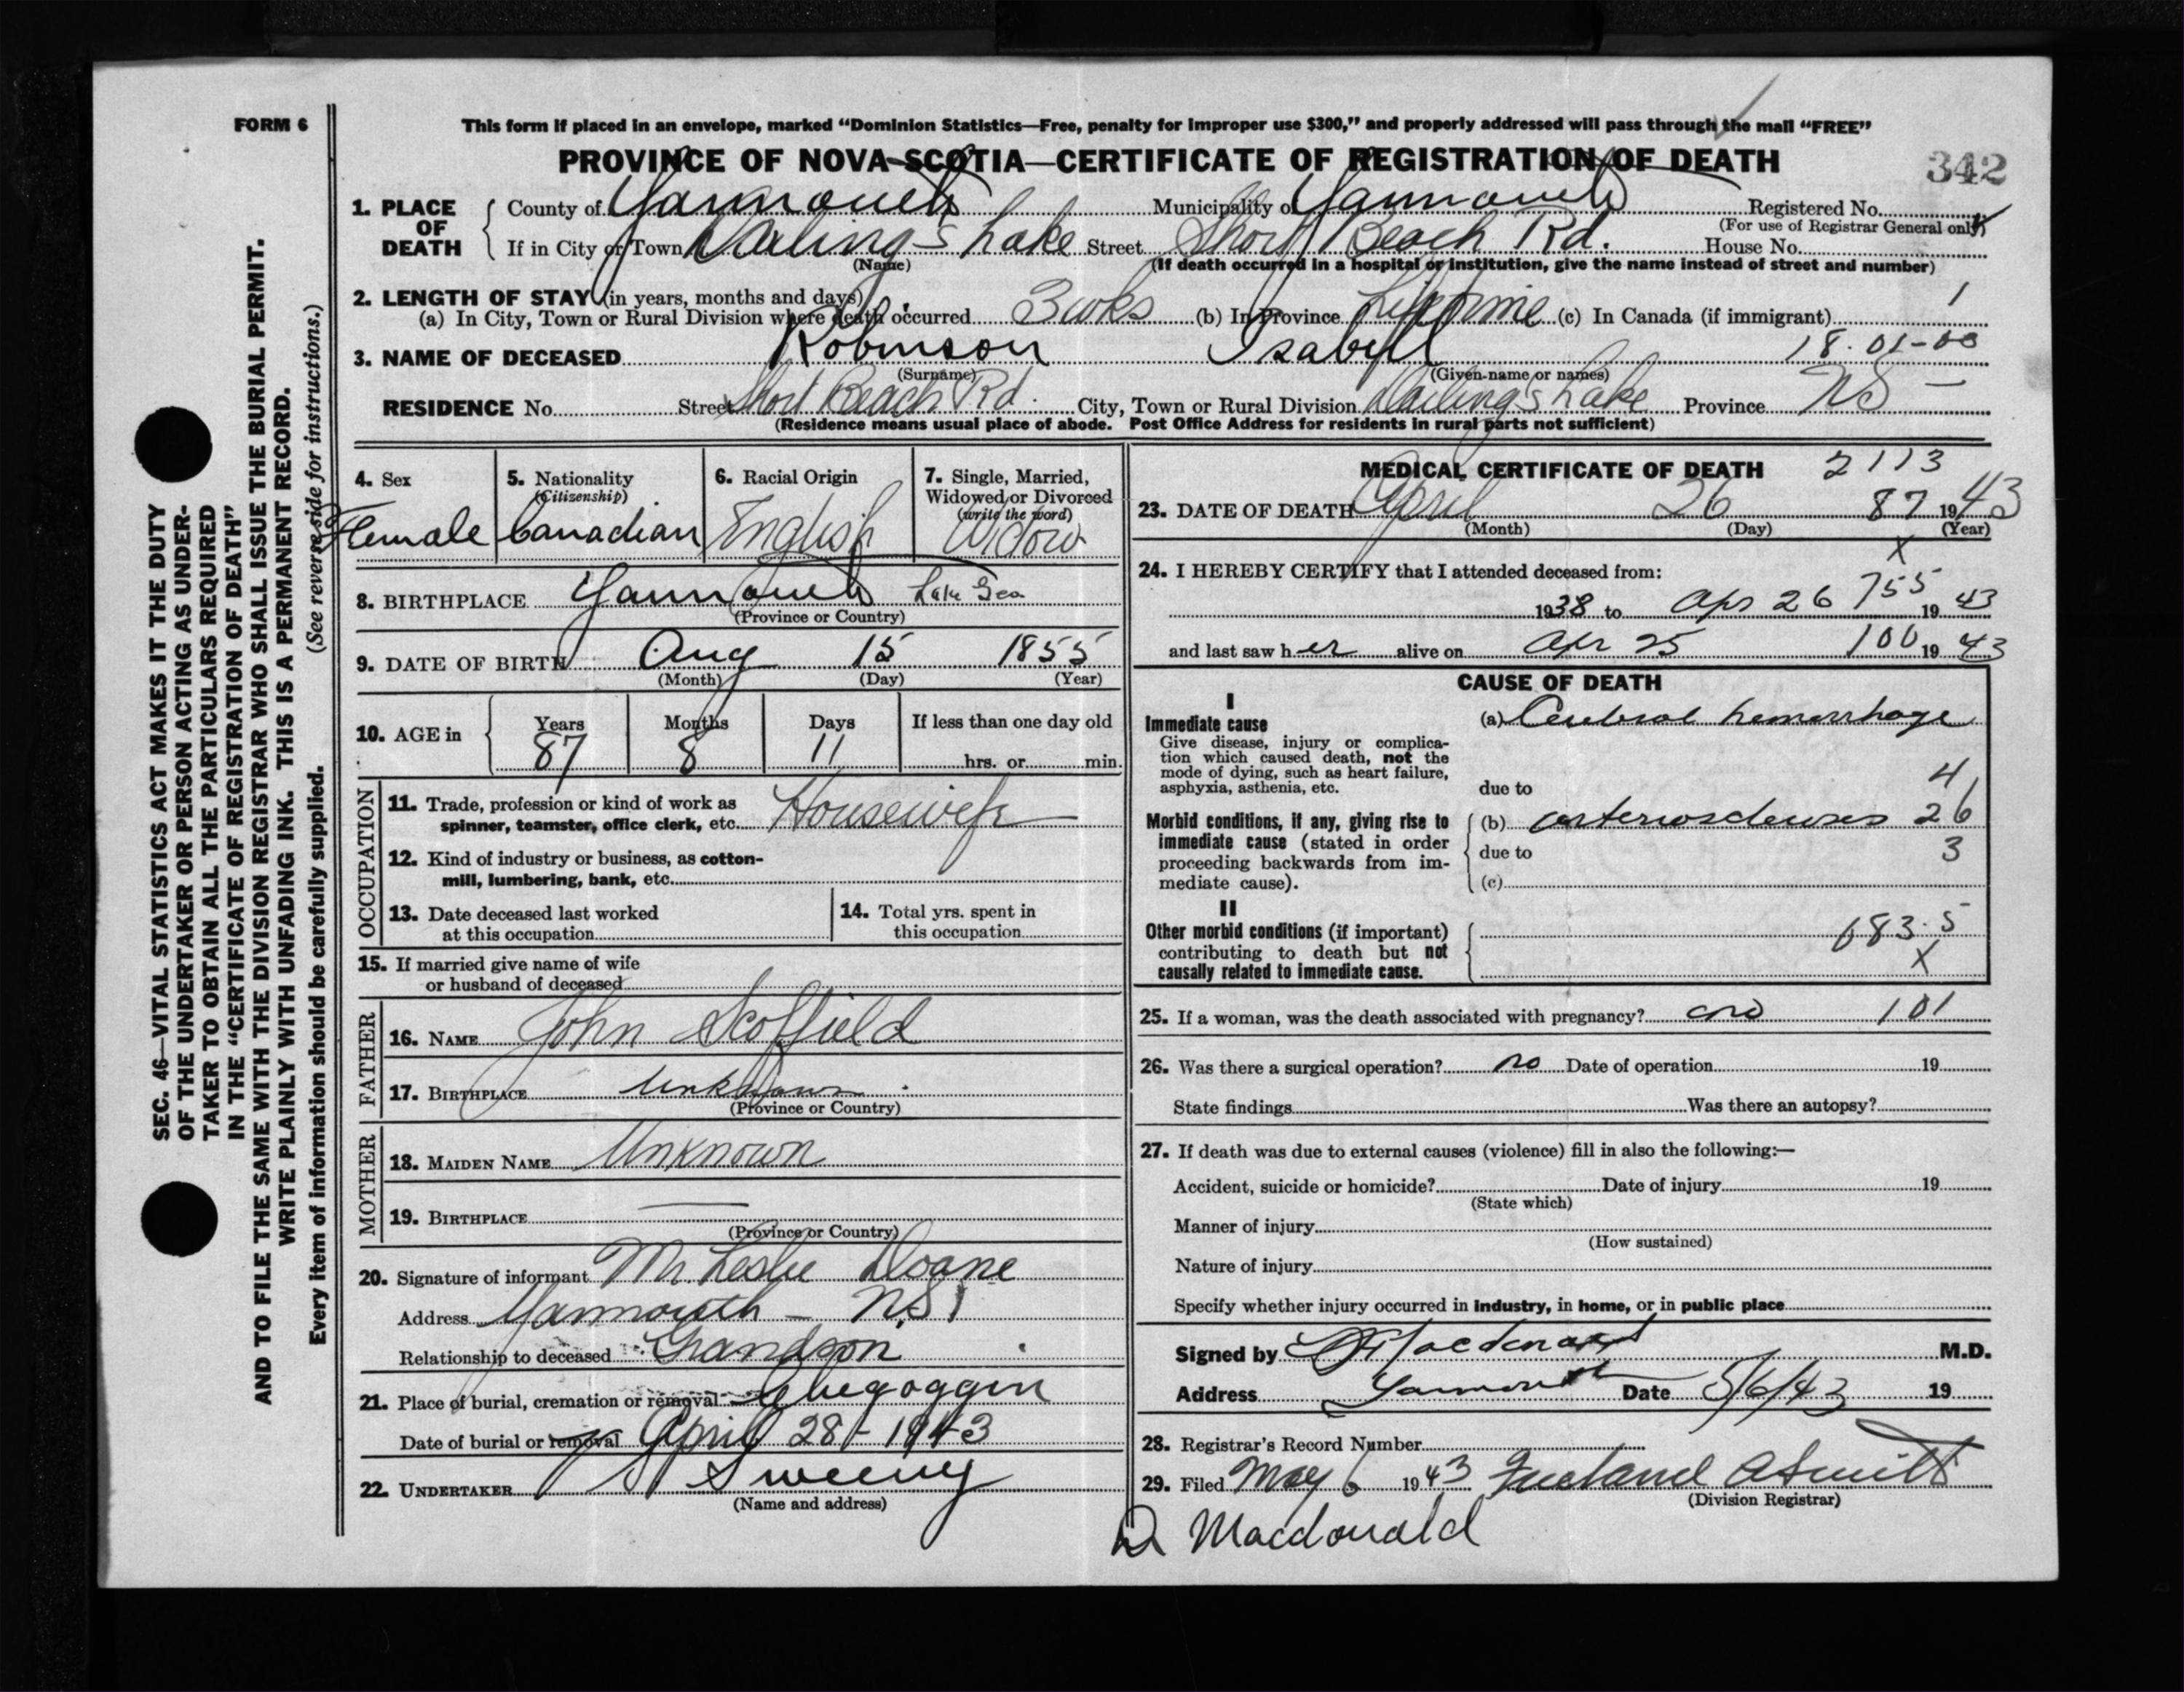 FORM 6
This form if placed in an envelope, marked “Dominion Statistics—Free, penalty for improper use $300,” and properly addressed will pass through the mail “FREE”
PROVINCE OF NOVA SCOTIA—CERTIFICATE OF REGISTRATION OF DEATH
342
1. PLACE OF DEATH
County of Yarmouth Municipality of Yarmouth Registered No.
(For use of Registrar General only)
If in City or Town Darling's Lake Street Short Beach Rd. House No.
(Name) (If death occurred in a hospital or institution, give the name instead of street and number)
2. LENGTH OF STAY (in years, months and days)
(a) In City, Town or Rural Division where death occurred 3 wks (b) In Province Lifetime (c) In Canada (if immigrant) 1
3. NAME OF DECEASED Robinson Isabell 18-01-00
(Surname) (Given name or names)
RESIDENCE No. Street Short Beach Rd. City, Town or Rural Division Darling's Lake Province NS —
(Residence means usual place of abode. Post Office Address for residents in rural parts not sufficient)
4. Sex
Female
5. Nationality
(Citizenship)
Canadian
6. Racial Origin
English
7. Single, Married,
Widowed or Divorced
(write the word)
Widow
8. BIRTHPLACE Yarmouth Lake Geo
(Province or Country)
9. DATE OF BIRTH Aug 15 1855
(Month) (Day) (Year)
10. AGE in
Years Months Days If less than one day old
87 8 11 hrs. or min.
OCCUPATION
11. Trade, profession or kind of work as
spinner, teamster, office clerk, etc. Housewife
12. Kind of industry or business, as cotton-
mill, lumbering, bank, etc.
13. Date deceased last worked
at this occupation
14. Total yrs. spent in
this occupation
15. If married give name of wife
or husband of deceased
FATHER
16. NAME John Scoffield
17. BIRTHPLACE Unknown
(Province or Country)
MOTHER
18. MAIDEN NAME Unknown
19. BIRTHPLACE —
(Province or Country)
20. Signature of informant Mr Leslie Doane
Address Yarmouth — N.S.
Relationship to deceased Grandson
21. Place of burial, cremation or removal Chegoggin
Date of burial or removal April 28 - 1943
22. UNDERTAKER Sweeny
(Name and address)
MEDICAL CERTIFICATE OF DEATH 2113
23. DATE OF DEATH April 26 87 1943
(Month) (Day) (Year)
x
24. I HEREBY CERTIFY that I attended deceased from:
1938 to Apr 26 755 19 43
and last saw her alive on Apr 25 100 19 43
CAUSE OF DEATH
I
Immediate cause
Give disease, injury or complica-
tion which caused death, not the
mode of dying, such as heart failure,
asphyxia, asthenia, etc.
(a) Cerebral hemorrhage
4
due to
Morbid conditions, if any, giving rise to
immediate cause (stated in order
proceeding backwards from im-
mediate cause).
(b) arteriosclerosis 26
due to 3
(c)
II
Other morbid conditions (if important)
contributing to death but not
causally related to immediate cause.
683.5
X
25. If a woman, was the death associated with pregnancy? no 101
26. Was there a surgical operation? no Date of operation 19
State findings Was there an autopsy?
27. If death was due to external causes (violence) fill in also the following:—
Accident, suicide or homicide? Date of injury 19
(State which)
Manner of injury
(How sustained)
Nature of injury
Specify whether injury occurred in industry, in home, or in public place
Signed by Macdonald M.D.
Address Yarmouth Date 5/6/43 19
28. Registrar's Record Number
29. Filed May 6 1943 Freeland A Smith
(Division Registrar)
Dr Macdonald
SEC. 46—VITAL STATISTICS ACT MAKES IT THE DUTY
OF THE UNDERTAKER OR PERSON ACTING AS UNDER-
TAKER TO OBTAIN ALL THE PARTICULARS REQUIRED
IN THE “CERTIFICATE OF REGISTRATION OF DEATH”
AND TO FILE THE SAME WITH THE DIVISION REGISTRAR WHO SHALL ISSUE THE BURIAL PERMIT.
WRITE PLAINLY WITH UNFADING INK. THIS IS A PERMANENT RECORD.
Every item of information should be carefully supplied. (See reverse side for instructions.)